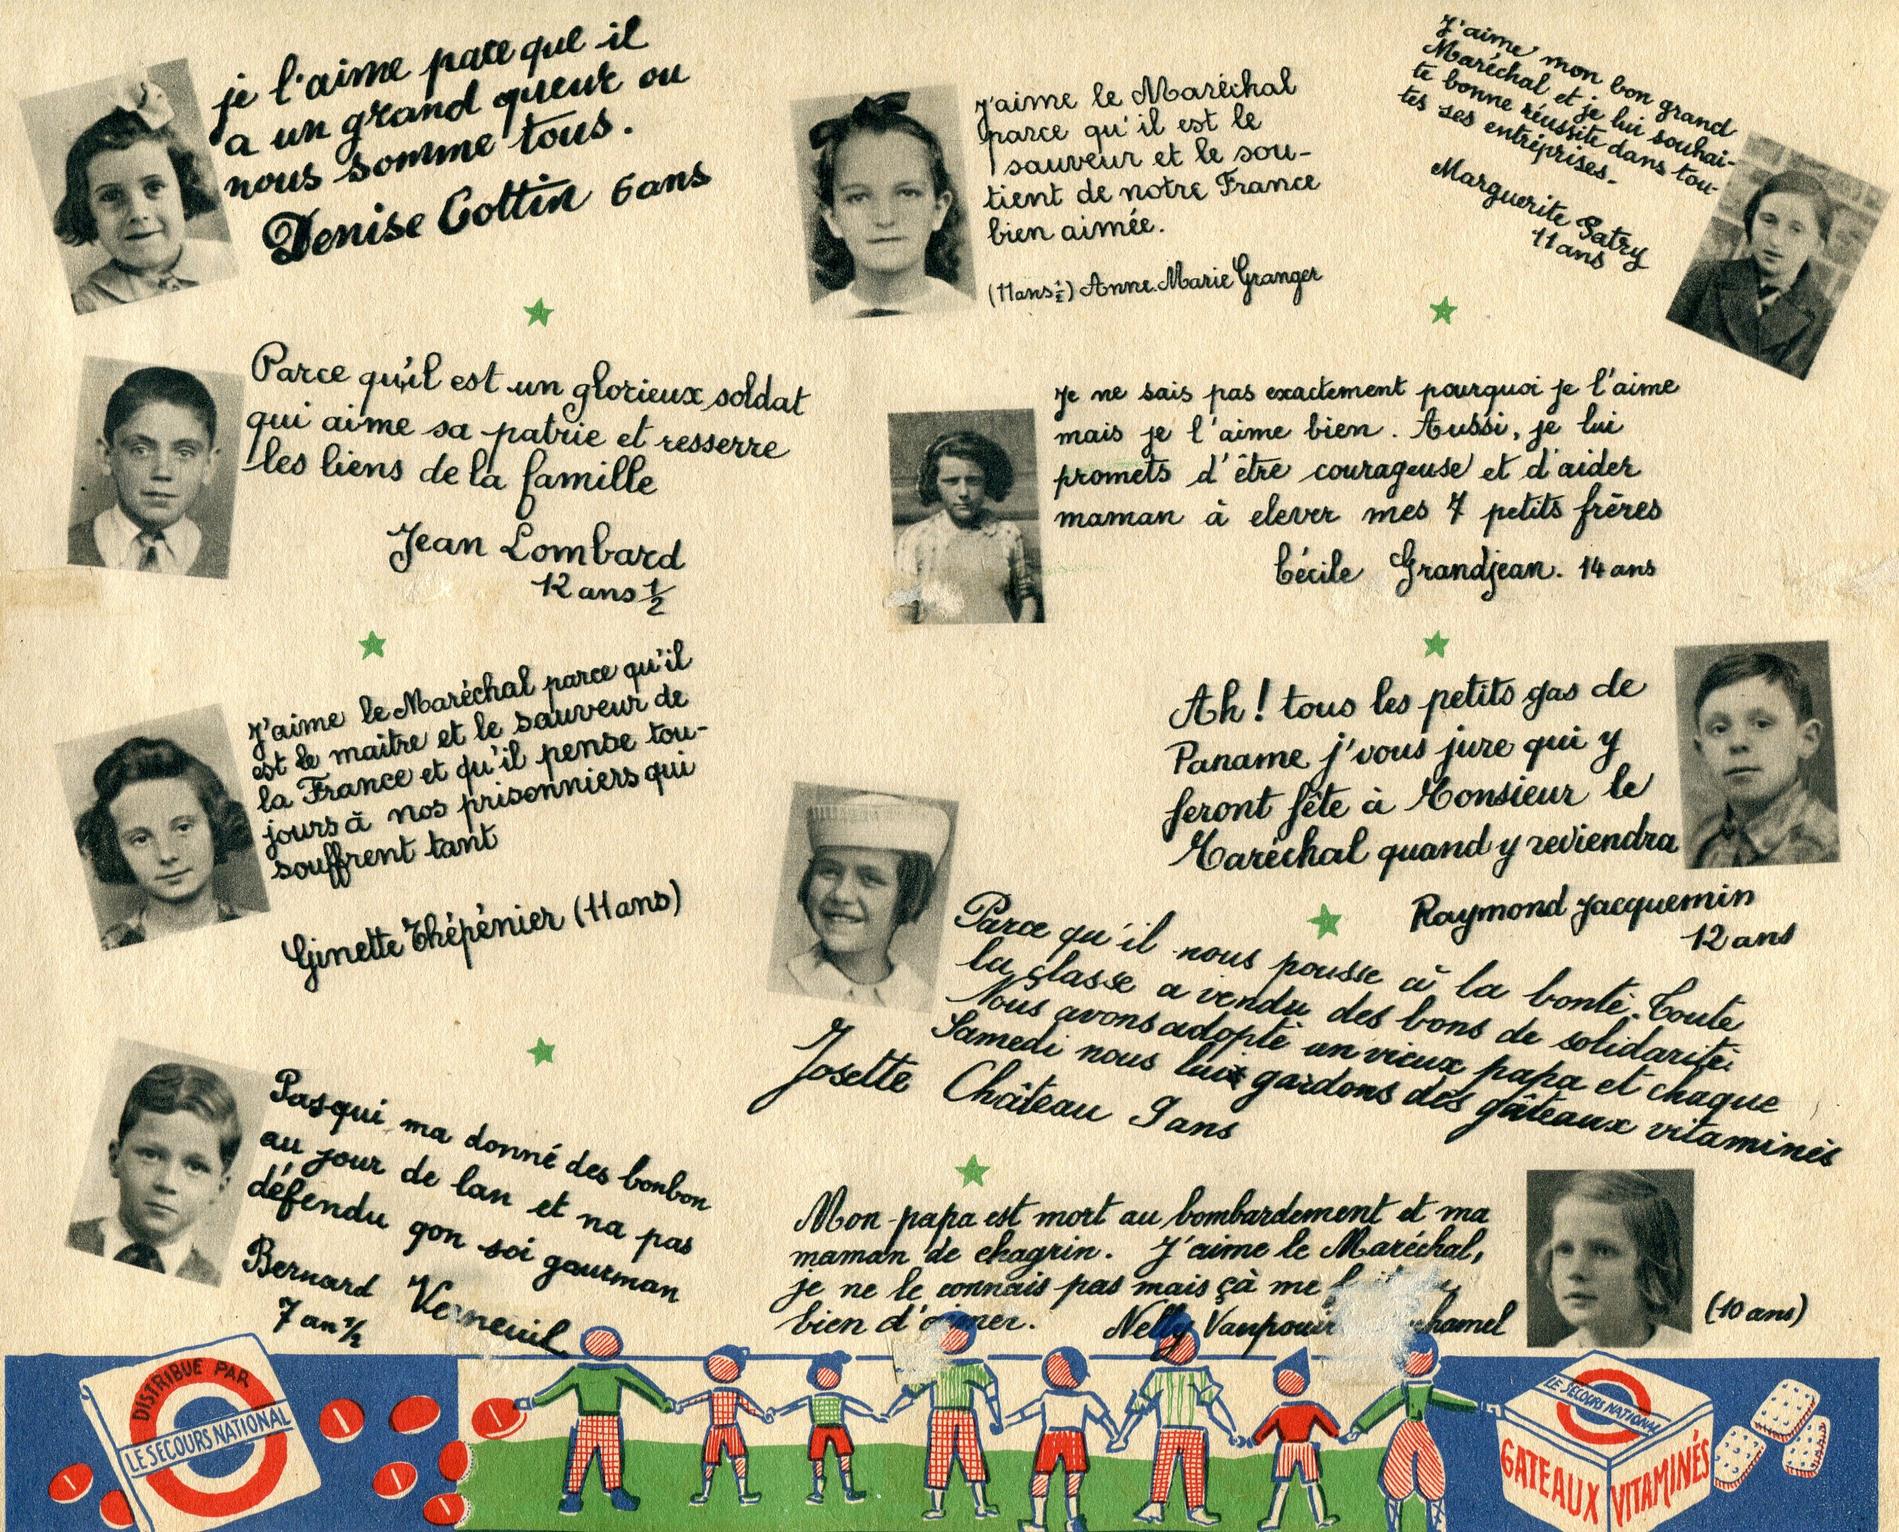 je l'aime pace que il
a un grand queur ou
nous somme tous.
Denise Cottin 6 ans
j'aime le Maréchal
parce qu'il est le
sauveur et le sou-
tient de notre France
bien aimée.
(11 ans ½) Anne-Marie Granger
J'aime mon bon grand
Maréchal et je lui souhai-
te bonne réussite dans tou-
tes ses entreprises.
Marguerite Satry
11 ans
Parce qu'il est un glorieux soldat
qui aime sa patrie et resserre
les liens de la famille
Jean Lombard
12 ans ½
Je ne sais pas exactement pourquoi je l'aime
mais je l'aime bien. Aussi, je lui
promets d'être courageuse et d'aider
maman à elever mes 7 petits frères
Cécile Grandjean. 14 ans
J'aime le Maréchal parce qu'il
est le maitre et le sauveur de
la France et qu'il pense tou-
jours à nos prisonniers qui
souffrent tant
Ginette Thépénier (11 ans)
Ah! tous les petits gas de
Paname j'vous jure qui y
feront fête à Monsieur le
Maréchal quand y reviendra
Raymond Jacquemin
12 ans
Parce qu'il nous pousse à la bonté. Toute
la classe a vendu des bons de solidarité.
Nous avons adopté un vieux papa et chaque
Samedi nous lui gardons des gâteaux vitaminés
Josette Château 9 ans
Pasqui ma donné des bonbon
au jour de lan et na pas
défendu gon soi gourman
Bernard Verneuil
7 an ½
Mon papa est mort au bombardement et ma
maman de chagrin. J'aime le Maréchal,
je ne le connais pas mais çà me
bien d'aimer. Nelly
(10 ans)
DISTRIBUE PAR
LE SECOURS NATIONAL
LE SECOURS NATIONAL
GATEAUX VITAMINÉS